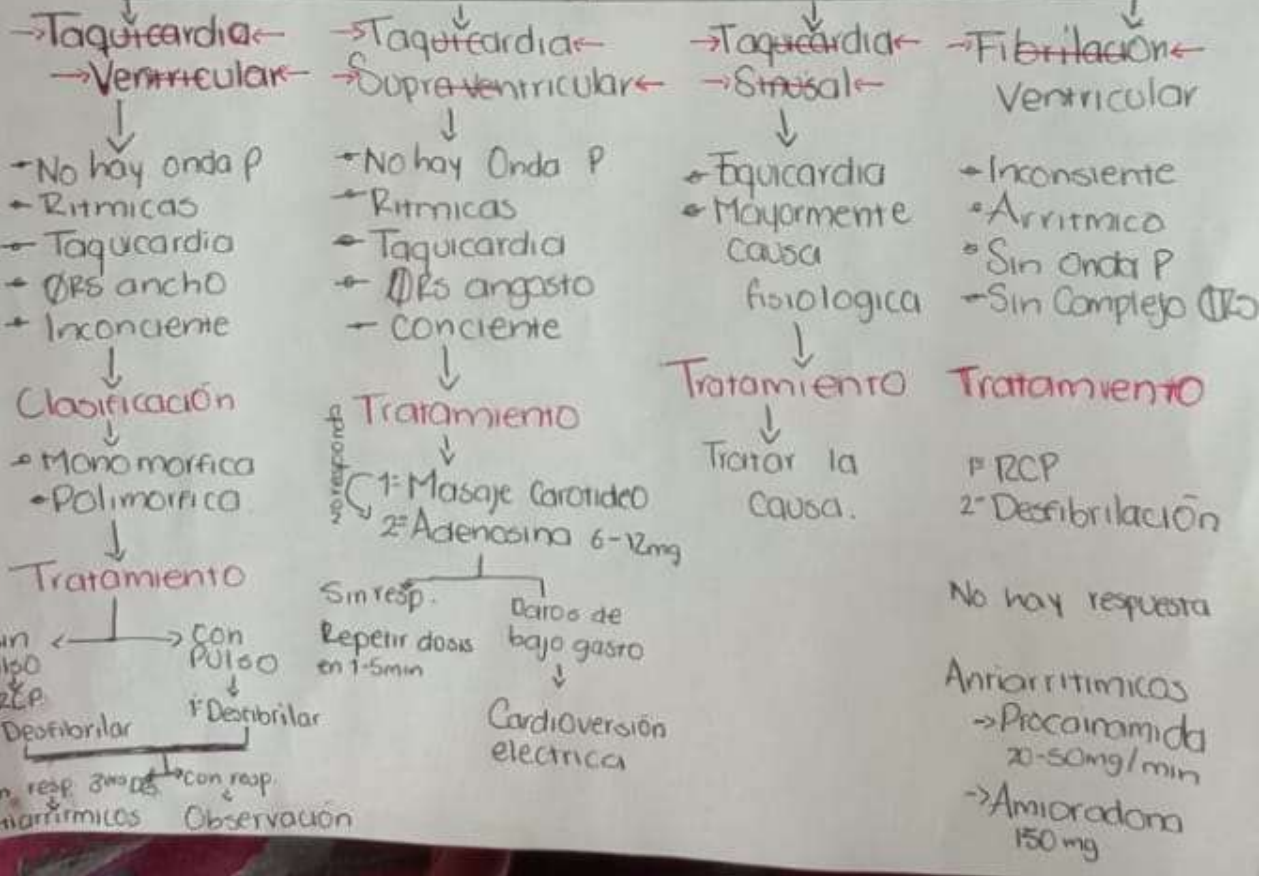 →Taquicardia←
→Ventricular←
- No hay onda P
- Ritmicas
- Taquicardia
- QRS ancho
- Inconciente
Clasificación
- Monomorfica
- Polimorfica
Tratamiento
Con
Pulso
Desfibrilar
1º Desfibrilar
resp. 3ra
con resp.
Observación
→Taquicardia←
→Supraventricular←
- No hay Onda P
- Ritmicas
- Taquicardia
- QRS angosto
- Conciente
Tratamiento
no responde
1º Masaje Carotideo
2º Adenosina 6-12mg
Sin resp.
Repetir dosis
en 1-5min
Datos de
bajo gasto
Cardioversión
electrica
→Taquicardia←
→Sinusal←
- Equicardia
- Mayormente
causa
fisiologica
Tratamiento
Tratar la
causa.
→Fibrilación←
Ventricular
- Inconsiente
- Arritmico
- Sin Onda P
- Sin Complejo QRS
Tratamiento
1º RCP
2º Desfibrilación
No hay respuesta
Antiarritimicos
→Procainamida
20-50mg/min
→Amioradona
150 mg